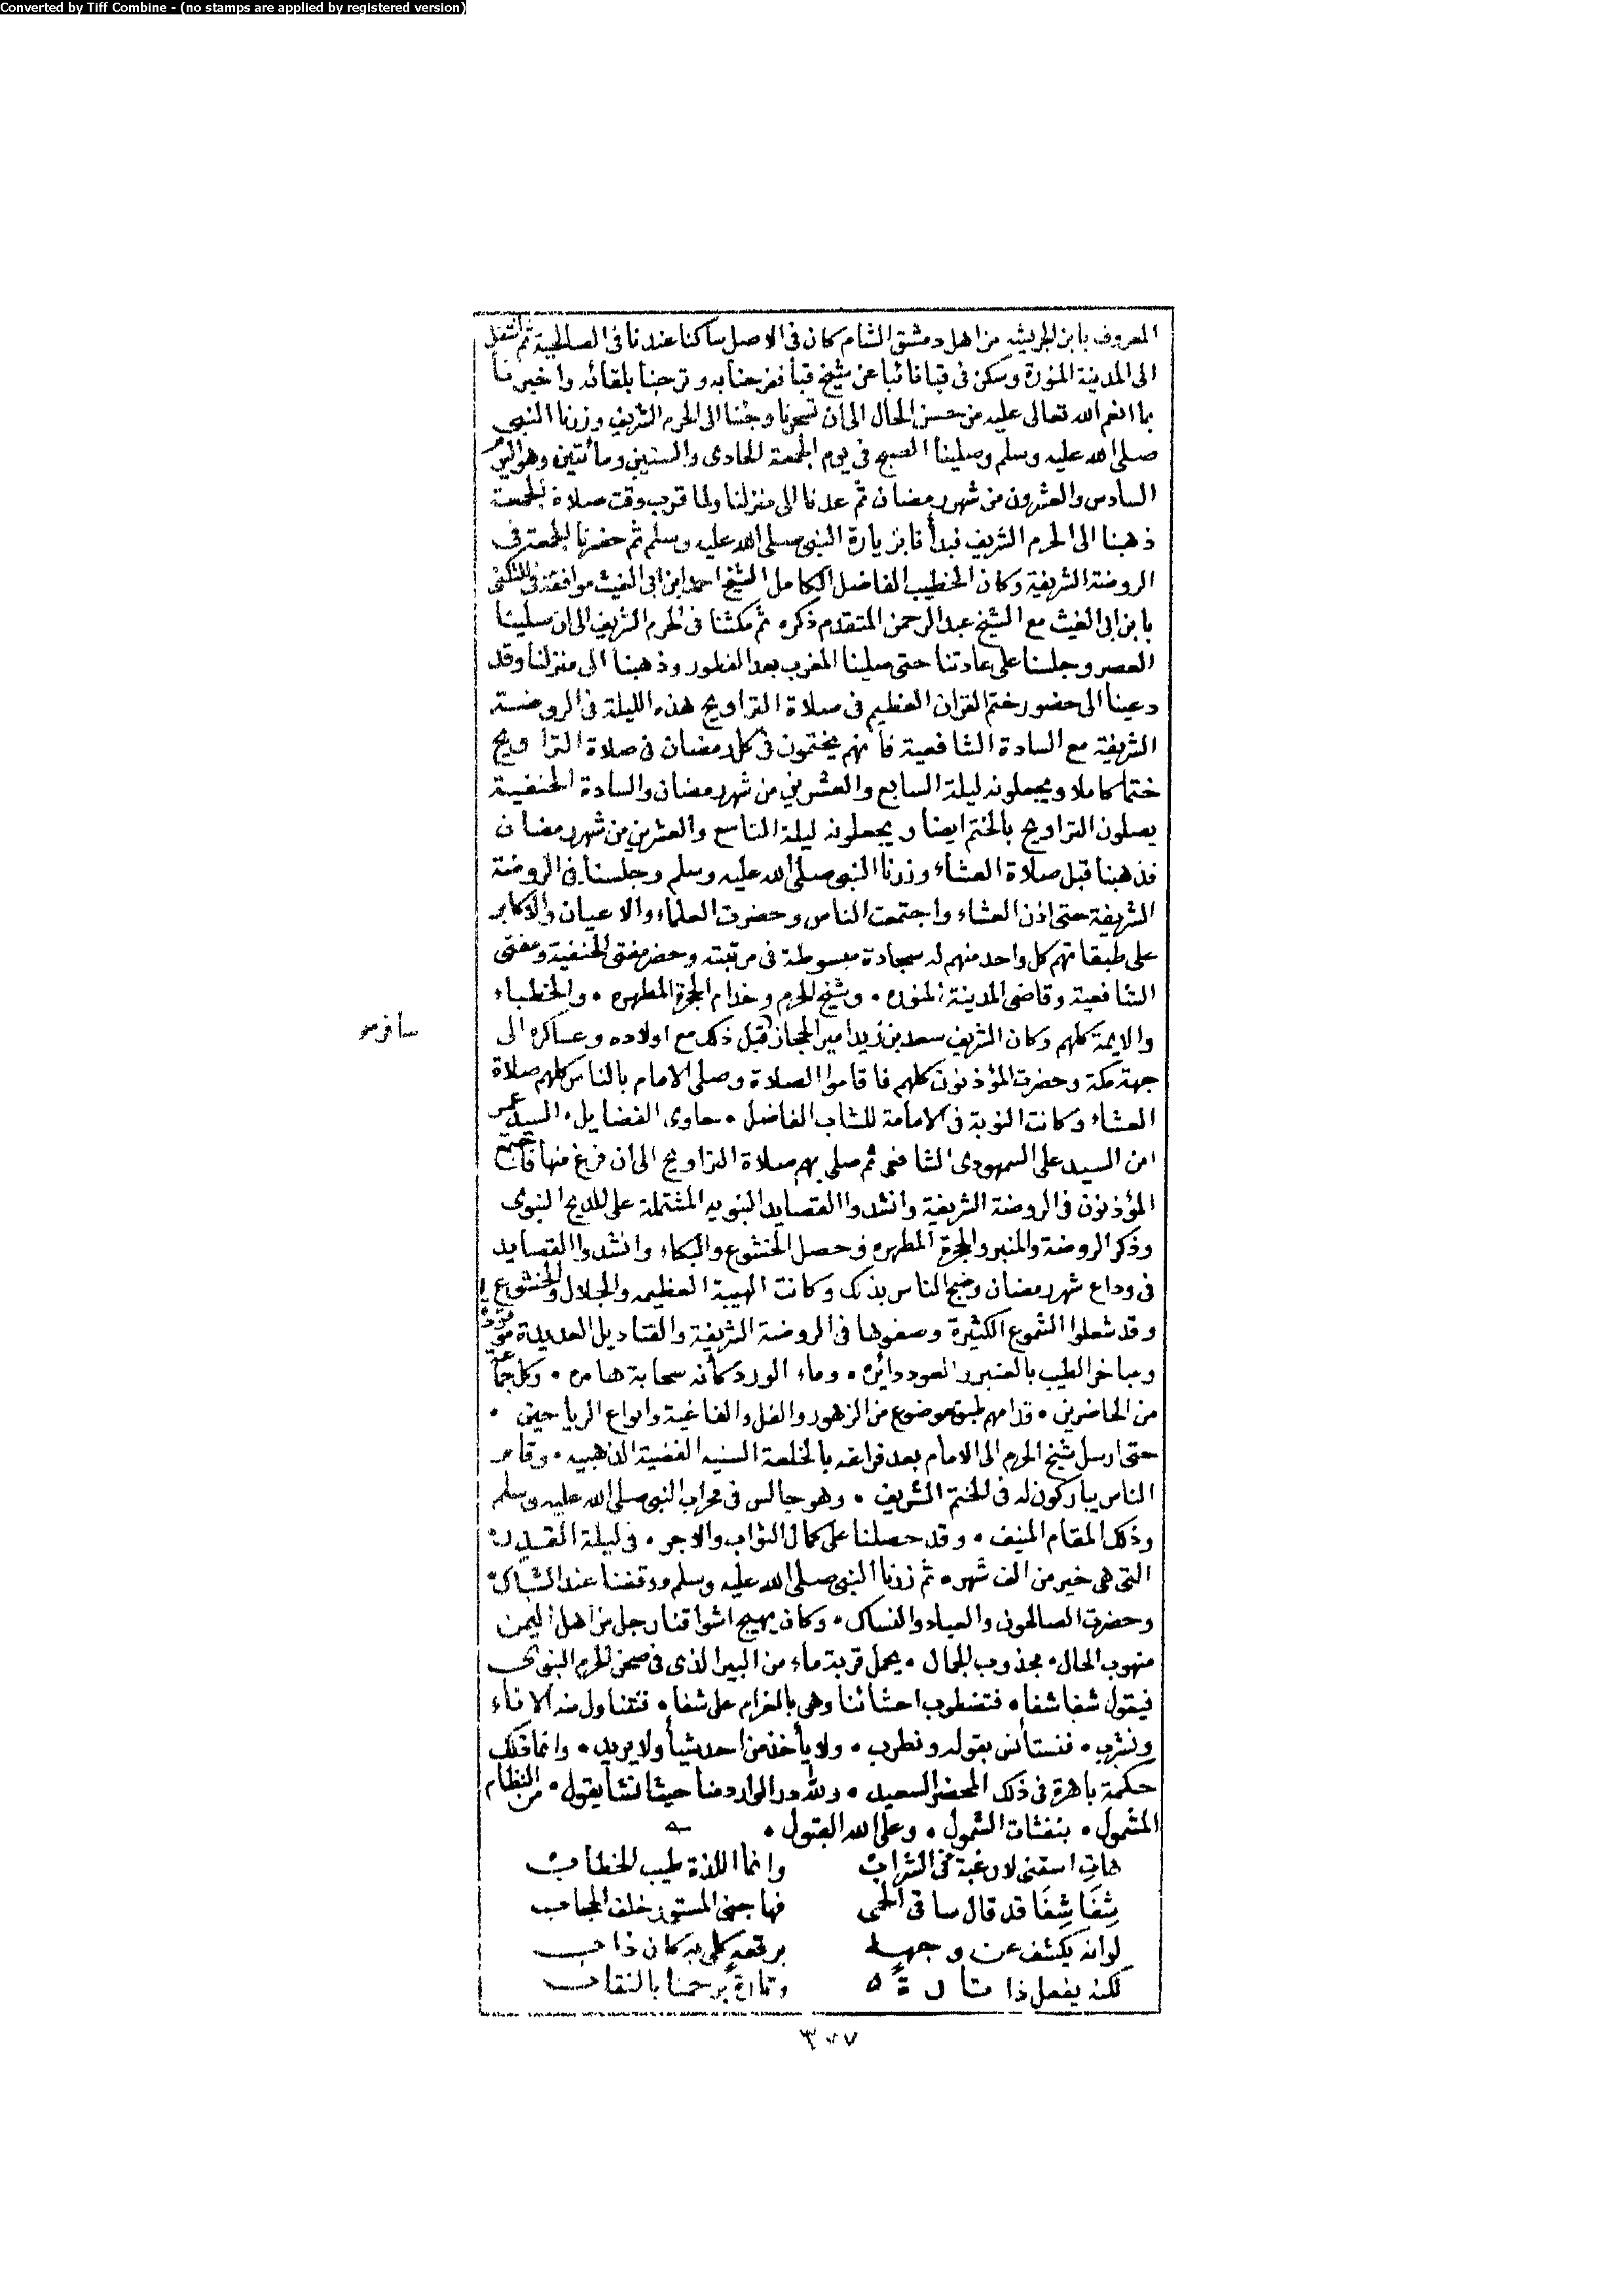 Converted by Tiff Combine - (no stamps are applied by registered version)
المعروف بابن الجريشه من اهل دمشق الشام كان فى الاصل ساكنا عندنا فى الصالحية ثم انتقل
الى المدينة المنورة وسكن فى قبا نائبا عن شيخ قبا ففرحنا به وترحبنا بلقائه واخبرنا
بما انعم الله تعالى عليه من حسن الحال الى ان تسحرنا وجئنا الى الحرم الشريف وزرنا النبى
صلى الله عليه وسلم وصلينا الصبح فى يوم الجمعة الحادى والستين ومائتين وهو اليوم
السادس والعشرون من شهر رمضان ثم عدنا الى منزلنا ولما قرب وقت صلاة الجمعة
ذهبنا الى الحرم الشريف فبدأنا بزيارة النبى صلى الله عليه وسلم ثم حضرنا الجمعة فى
الروضة الشريفة وكان الخطيب الفاضل الكامل الشيخ احمد ابن ابى الغيث موافقة فى التكنى
بابن ابى الغيث مع الشيخ عبد الرحمن المتقدم ذكره ثم مكثنا فى الحرم الشريف الى ان صلينا
العصر وجلسنا على عادتنا حتى صلينا المغرب بعد الفطور وذهبنا الى منزلنا وقد
دعينا الى حضور ختم القران العظيم فى صلاة التراويح هذه الليلة فى الروضة
الشريفة مع السادة الشافعية فانهم يختمون فى كل رمضان فى صلاة التراويح
ختما كاملا ويجعلونه ليلة السابع والعشرين من شهر رمضان والسادة الحنفية
يصلون التراويح بالختم ايضا ويجعلونه ليلة التاسع والعشرين من شهر رمضان
فذهبنا قبل صلاة العشاء وزرنا النبى صلى الله عليه وسلم وجلسنا فى الروضة
الشريفة حتى اذن العشاء واجتمعت الناس وحضرت العلماء والاعيان والاكابر
على طبقاتهم كل واحد منهم له سجادة مبسوطة فى مرتبته وحضر مفتى الحنفية ومفتى
الشافعية وقاضى المدينة المنوره • وشيخ الحرم وخدام الحجرة المطهره • والخطباء
والايمة كلهم وكان الشريف سعد بن زيد امير الحجاز قبل ذلك مع اولاده وعساكره الى
سافر صح
جهة مكة وحضرت المؤذنون كلهم فاقاموا الصلاة وصلى الامام بالناس كلهم صلاة
العشاء وكانت النوبة فى الامامة للشاب الفاضل • حاوى الفضايل • السيد عمر
ابن السيد على السمهودى الشافعى ثم صلى بهم صلاة التراويح الى ان فرغ منها فاجتمع
المؤذنون فى الروضة الشريفة وانشدوا القصايد النبويه المشتملة على المديح النبوى
وذكر الروضة والمنبر والحجرة المطهره وحصل الخشوع والبكاء وانشدوا القصايد
فى وداع شهر رمضان وضج الناس بذلك وكانت الهيبة العظيمه والجلال والخشوع
وقد شعلوا الشموع الكثيرة وصفوها فى الروضة الشريفة والقناديل العديدة موقودة
ومباخر الطيب بالعنبر والعود دائره • وماء الورد كأنه سحابة هامره • وكل جماعة
من الحاضرين • قدامهم طبق موضوع من الزهور والفل والفاغية وانواع الرياحين •
حتى ارسل شيخ الحرم الى الامام بعد فراغه بالخلعة السنيه الفضية الذهبيه • وقام
الناس يباركون له فى الختم الشريف • وهو جالس فى محراب النبى صلى الله عليه وسلم
وذلك المقام المنيف • وقد حصلنا على كمال الثواب والاجر • فى ليلة القدر
التى هى خير من الف شهر • ثم زرنا النبى صلى الله عليه وسلم ووقفنا عند الشباك
وحضرت الصالحون والعباد والنساك • وكان يهيج اشواقنا رجل من اهل اليمن
منهوب الحال • مجذوب الجمال • يحمل قربة ماء من البير الذى فى صحن الحرم النبوى
فيقول شفا شفا • فتضطرب احشائنا وهى بالغرام على شفا • فنتناول منه الاناء
ونشرب • فنستأنس بقوله ونطرب • ولا يأخذ من احد شيأ ولا يريد • وانما تلك
حكمة باهرة فى ذلك المحضر السعيد • ولله در الوارد منا حيث انشا يقول • من النظام
المشمول • بنفثات الشمول • وعلى الله القبول •
هات اسقنى لا رغبة فى الشراب وانما اللذة طيب الخطاب
شِفَا شِفَا قد قال ساقى الحمى فهاجنى المستور خلف الحجاب
لو انه يكشف عن وجهه برقعه كلى به كان ذاب
لكنه يفعل ذا تارة وتارة يرحمنا بالنقاب